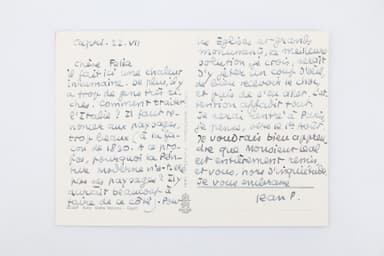 Capri - 22-VII
Chère Felia
il fait ici une chaleur
inhumaine. De plus, il y
a trop de gens très ri-
ches. Comment traiter
l'Italie? Il faut re-
noncer aux paysages,
trop beaux, à la fa-
çon de 1820. A ce pro-
pos, pourquoi la
moderne n'a-t-elle
pas des paysages? Il y
aurait beaucoup à
faire de ce côté. Pour
les Églises et grands
monuments, la meilleure
solution je crois, serait
d'y jeter un coup d'œil,
de bien recevoir le choc
et puis de s'en aller. L'at-
tention affaiblit tout.
Je serai rentré à Paris,
je pense, vers le 1er Août.
Je voudrais bien appren-
dre que Monsieur
est entièrement remis,
et vous, hors d'inquiétude.
Je vous embrasse
Jean P.